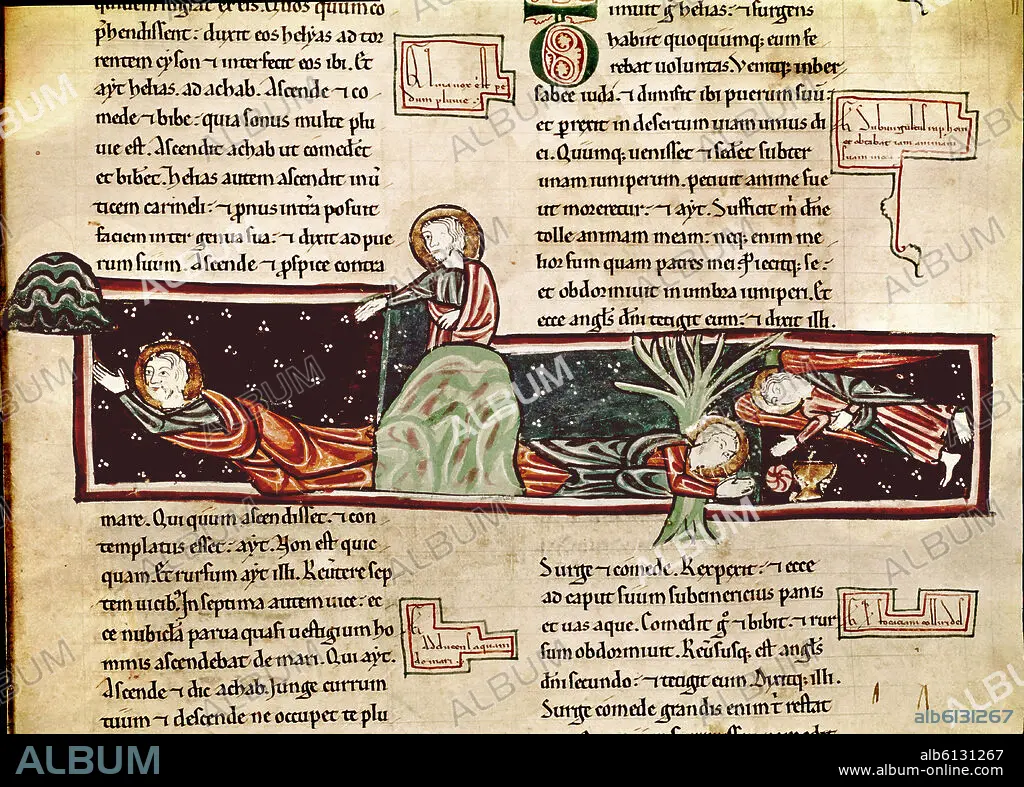 quidem fugiat ex eis. Quos quum co
p̄hendissent: duxit eos helẏas ad tor
rentem cẏson ⁊ interfecit eos ibi. Et
aẏt helias. ad achab. Ascende ⁊ co
mede ⁊ bibe: quia sonus multe plu
uie est. Ascendit achab ut comedet̄
et bibet̄. helias autem ascendit in ū
ticem carmeli: ⁊ ꝓnus in tr̄a posuit
faciem inter genua sua: ⁊ dixit ad pue
rum suum. Ascende ⁊ ꝓspice contra
mare. Qui quum ascendisset. ⁊ con
templatus esset: aẏt. Non est quic
quam. Et rursum aẏt illi. Reūtere sep
tem uicib᾽. In septima autem uice: ec
ce nubicl̄a parua quasi uestigium ho
minis ascendebat de mari. Qui aẏt.
Ascende ⁊ dic achab. Junge currum
tuum ⁊ descende ne occupet te plu
dum pluuie.
Adducens aquam
de mari.
timuit g̊ helias: ⁊ surgens
habiit quoquumq; eum fe
rebat uoluntas. Venitq; in ber
sabee iuda. ⁊ dimisit ibi puerum suū:
et ꝑrexit in desertum uiam unius di
ei. Quumq; uenisset ⁊ sedet̄ subter
unam iuniperum. petiuit anime sue
ut moreretur: ⁊ aẏt. Sufficit m̄ dn̄e
tolle animam meam: neq; enim me
lior sum quam patres mei. P̄iecitq; se:
et obdormiuit in umbra iuniperi. Et
ecce angl̄s dn̄i tetigit eum: ⁊ dixit illi.
Surge ⁊ comede. Rexpexit: ⁊ ecce
ad caput suum subcinericius panis
et uas aque. Comedit g̊ ⁊ bibit: ⁊ rur
sum obdormiuit. Reūsusq; est angl̄s
dn̄i secundo: ⁊ tetigit eum. Dẏxitq; illi.
Surge comede grandis enim t̄ restat
ALBUM
alb6131267
ALBUM
alb6131267
www.album-online.com